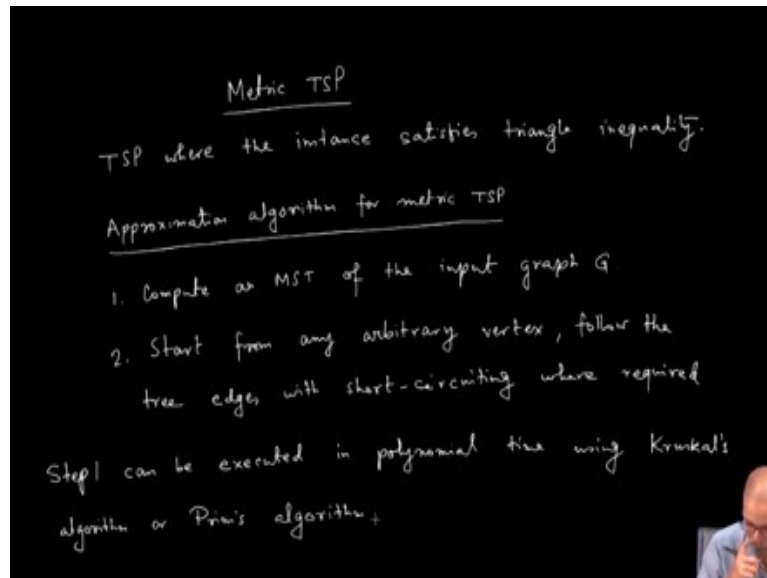 Metric TSP
TSP where the instance satisfies triangle inequality.
Approximation algorithm for metric TSP
1. Compute an MST of the input graph G
2. Start from any arbitrary vertex, follow the
tree edges with short-circuiting where required
Step1 can be executed in polynomial time using Kruskal's
algorithm or Prim's algorithm.